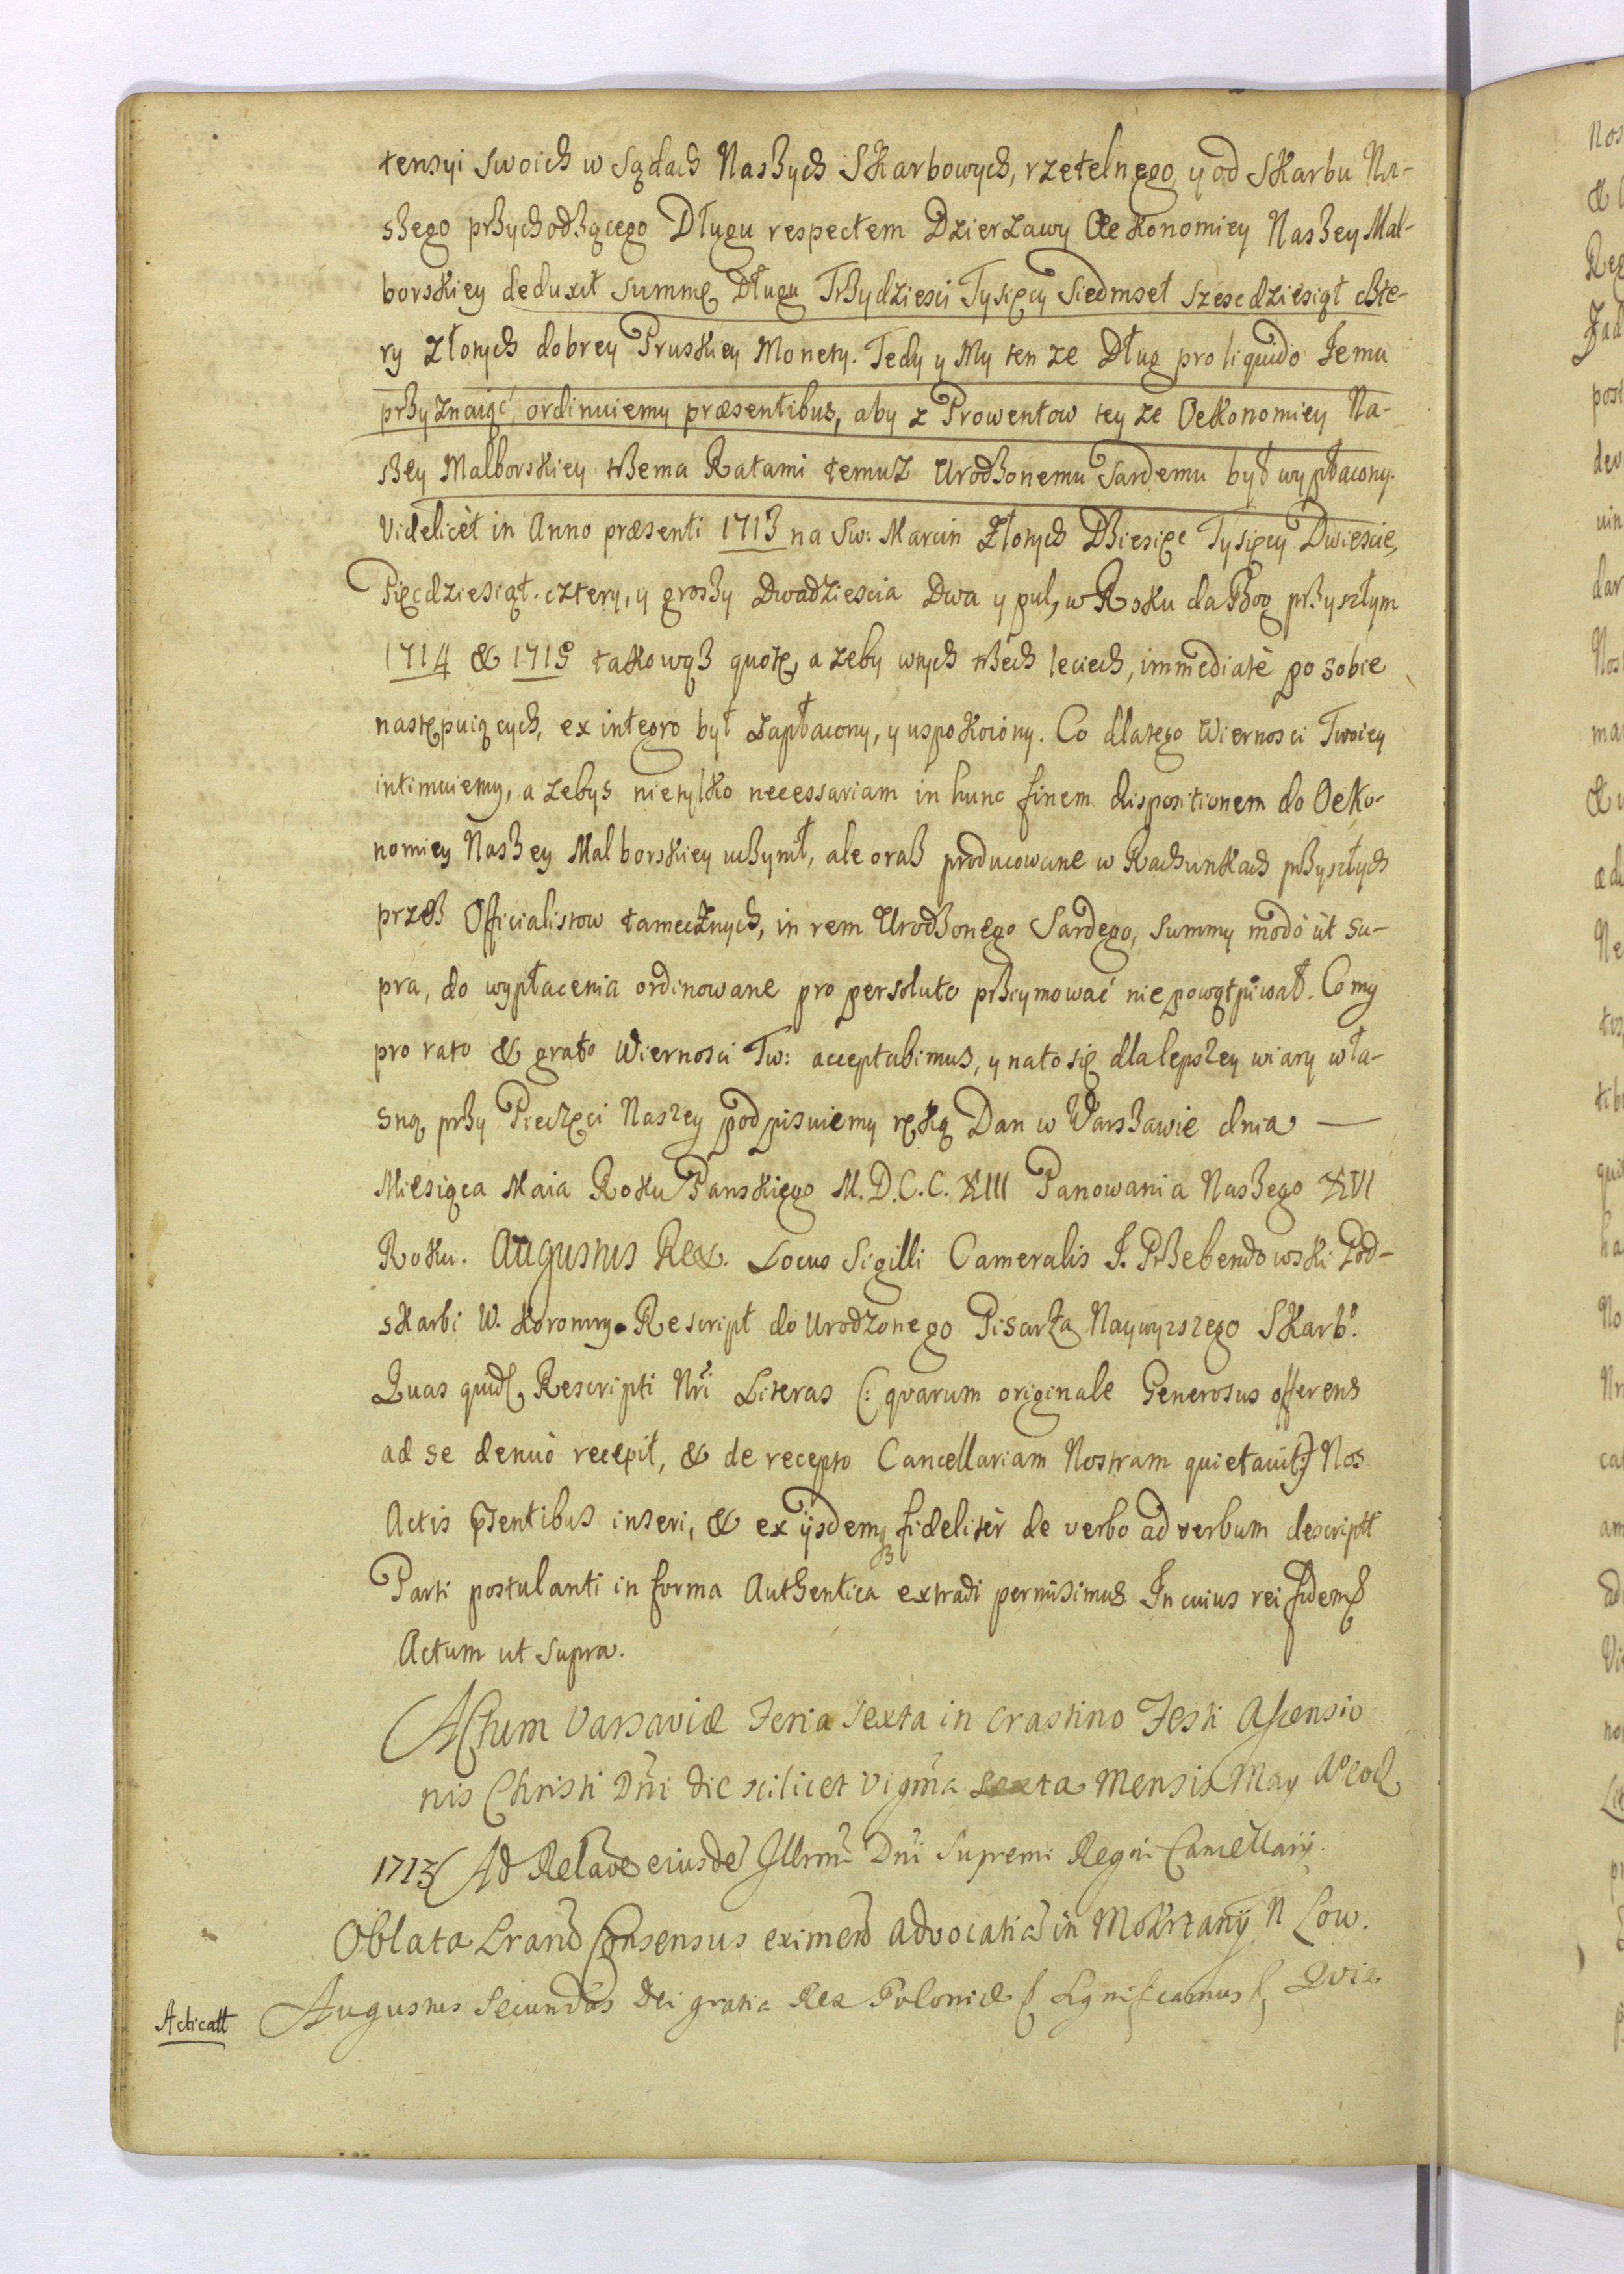 tensyi Swoich w Sądach Naszych Skarbowych, rzetelnego y od Skarbu Na-
szego przychodzącego Długu respectem Dzierzawy Oekonomiey Naszey Mal-
borskiey deduxit Summę Długu Trzydziesci Tysięcy Siedmset Szescdziesiąt czte-
ry Złotych dobrey Pruskiey Monety. Tedy y My ten ze Dług pro liquido Jemu
przyznaiąć, ordinuiemy præsentibus, aby z Prowentow tey ze Oekonomiey Na-
szey Malborskiey trzema Ratami temuz Urodzonemu Sardemu był wypłacony.
Videlicèt in Anno præsenti 1713 na Sw: Marcin Złotych Dziesięc Tysięcy Dwiescie,
Pięcdziesiąt cztery, y groszy Dwadziescia Dwa y pul, w Roku da Bog przyszłym
1714 & 1715 takowąz quotę, a zeby wtych trzech leciech, immediatè po sobie
następuiących, ex integro był zapłacony, y uspokoiony. Co dlatego Wiernosci Twoiey
intimuiemy, a zebys nietylko necessariam in hunc finem dispositionem do Oeko-
nomiey Naszey Malborskiey uczynił, ale oraz producowane w Rachunkach przyszłych
przez Officialistow tamecznych, in rem Urodzonego Sardego, Summy modò ùt su-
pra, do wypłacenia ordinowane pro persoluto przyimować niepowątpiwał. Co my
pro rato & grato Wiernosci Tw: acceptabimus, y nato się dla lepszey wiary wła-
sną przy Pieczęci Naszey podpisuiemy ręką Dan w Warszawie dnia —
Miesiąca Maia Roku Panskiego M.D.C.C.XIII Panowania Naszego XVI
Roku. Augustus Rex. Locus Sigilli Cameralis J. Przebendowski Pod-
skarbi W. Koronny. Rescript do Urodzonego Pisarza Naywyzszego Skarb°.
Quas quid Rescripti Nri Literas (: quarum originale Generosus offerens
ad se denuò recepit, & de recepto Cancellariam Nostram quietavit:) Nos
Actis psentibus inseri, & ex ijsdem fidelitèr de verbo ad verbum descriptt
Parti postulanti in forma Authentica extradi permisimus. In cuius rei fidem
Actum ut Supra.
Actum Varsaviæ Feria Sexta in crastino Festi Ascensio
nis Christi Dni die scilicet vigma Sexta Mensis May A° eod
1713 Ad Relaoe eiusde Illrm Dni Supremi Regni Cancellarij
Oblata Lrand Consensus eximend advocatia in Mokrzanij N Low.
Acticatt Augustus Secundus Dei gratia Rex Poloniæ Significamus Qvia